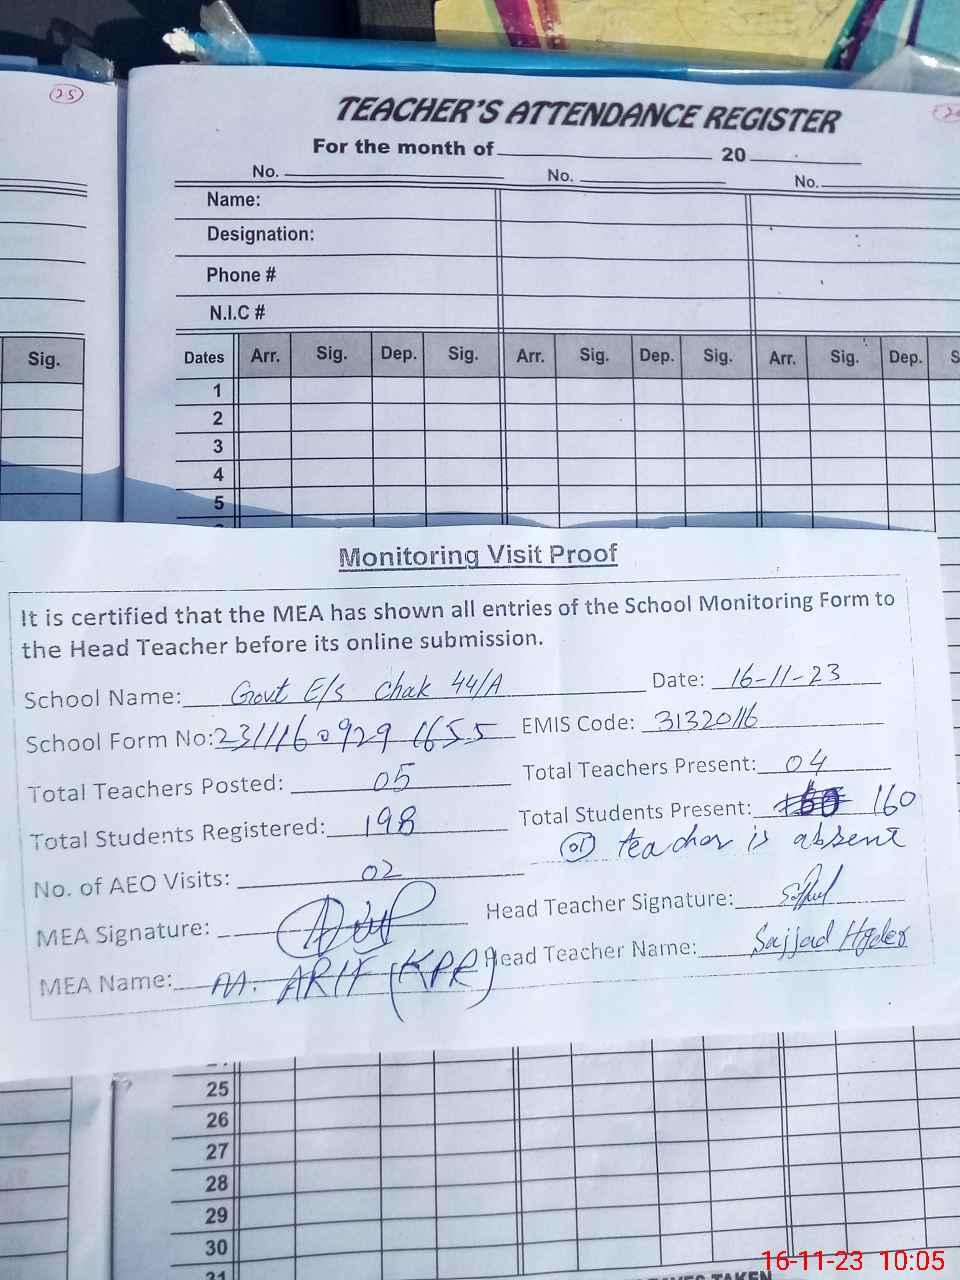 25
TEACHER'S ATTENDANCE REGISTER
For the month of 20
No. No. No.
Name:
Designation:
Phone #
N.I.C #
Sig. Dates Arr. Sig. Dep. Sig. Arr. Sig. Dep. Sig. Arr. Sig. Dep.
1
2
3
4
5
Monitoring Visit Proof
It is certified that the MEA has shown all entries of the School Monitoring Form to
the Head Teacher before its online submission.
School Name: Govt E/s Chak 44/A Date: 16-11-23
School Form No: 2311160929 1655 EMIS Code: 31320116
Total Teachers Posted: 05 Total Teachers Present: 04
Total Students Registered: 198 Total Students Present: 160
01 teacher is absent
No. of AEO Visits: 02
MEA Signature: Head Teacher Signature:
MEA Name: M. ARIF (KPR) Head Teacher Name: Sajjad Hyder
25
26
27
28
29
30
31
TAKEN
16-11-23 10:05